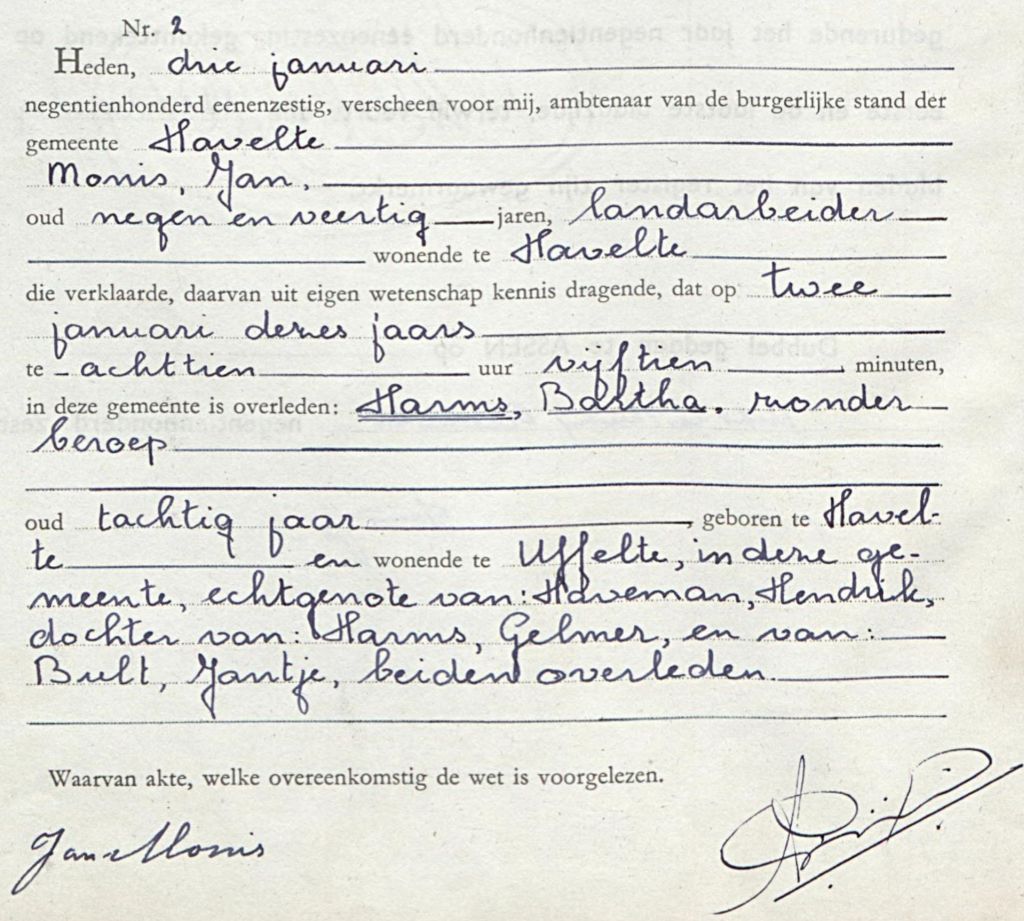 Nr. 2
Heden, drie januari
negentienhonderd eenenzestig, verscheen voor mij, ambtenaar van de burgerlijke stand der
gemeente Havelte
Monis, Jan,
oud negen en veertig jaren, landarbeider
wonende te Havelte
die verklaarde, daarvan uit eigen wetenschap kennis dragende, dat op twee
januari dezes jaars
te achttien uur vijftien minuten,
in deze gemeente is overleden: Harms, Bartha, zonder
beroep
oud tachtig jaar, geboren te Havel-
te en wonende te Uffelte, in deze ge-
meente, echtgenote van: Haveman, Hendrik,
dochter van: Harms, Gelmer, en van:
Bult, Jantje, beiden overleden
Waarvan akte, welke overeenkomstig de wet is voorgelezen.
Jan Monis